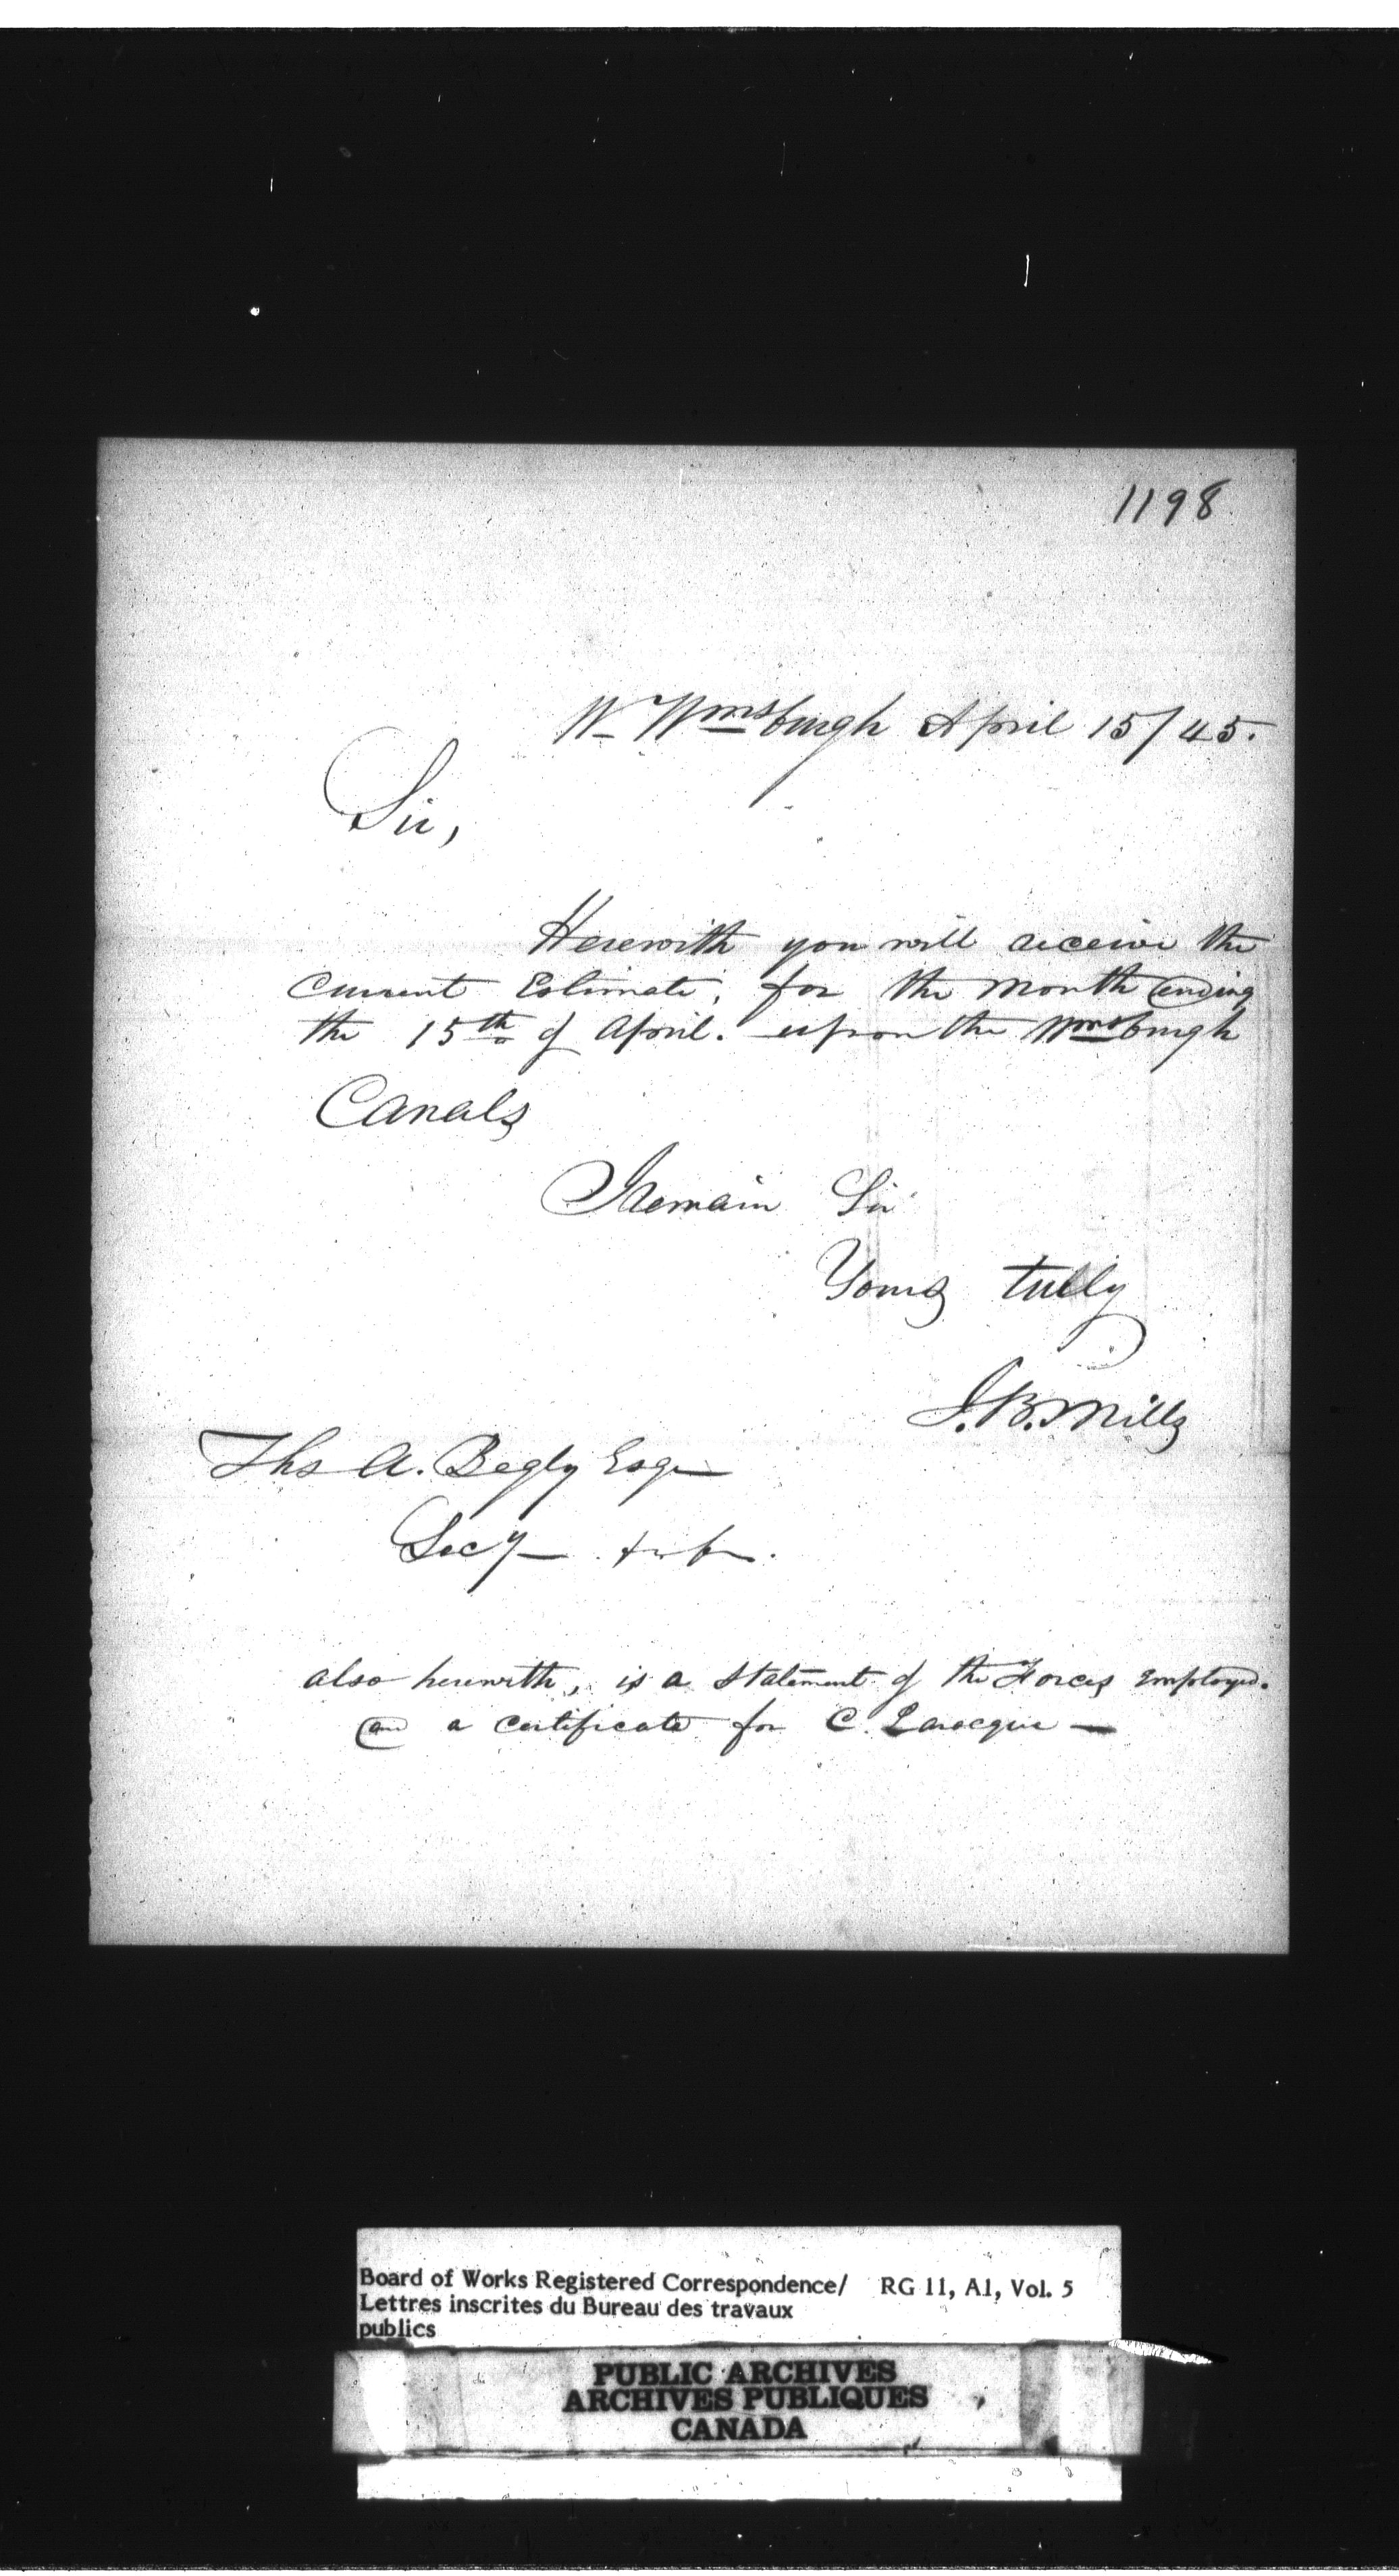 1198
W Wmsburgh April 15/45.
Sir,
Herewith you will receive the
Current Estimate, for the Month Ending
the 15th of April. upon the Wmsburgh
Canals
I Remain Sir
Yours tully
J. B. Mills
Ths A. Begly Esqr
Secy
also herewith, is a Statement of the Forces Employed.
and a Certificate for C. Larocque —
Board of Works Registered Correspondence/ RG 11, A1, Vol. 5
Lettres inscrites du Bureau des travaux
publics
PUBLIC ARCHIVES
ARCHIVES PUBLIQUES
CANADA